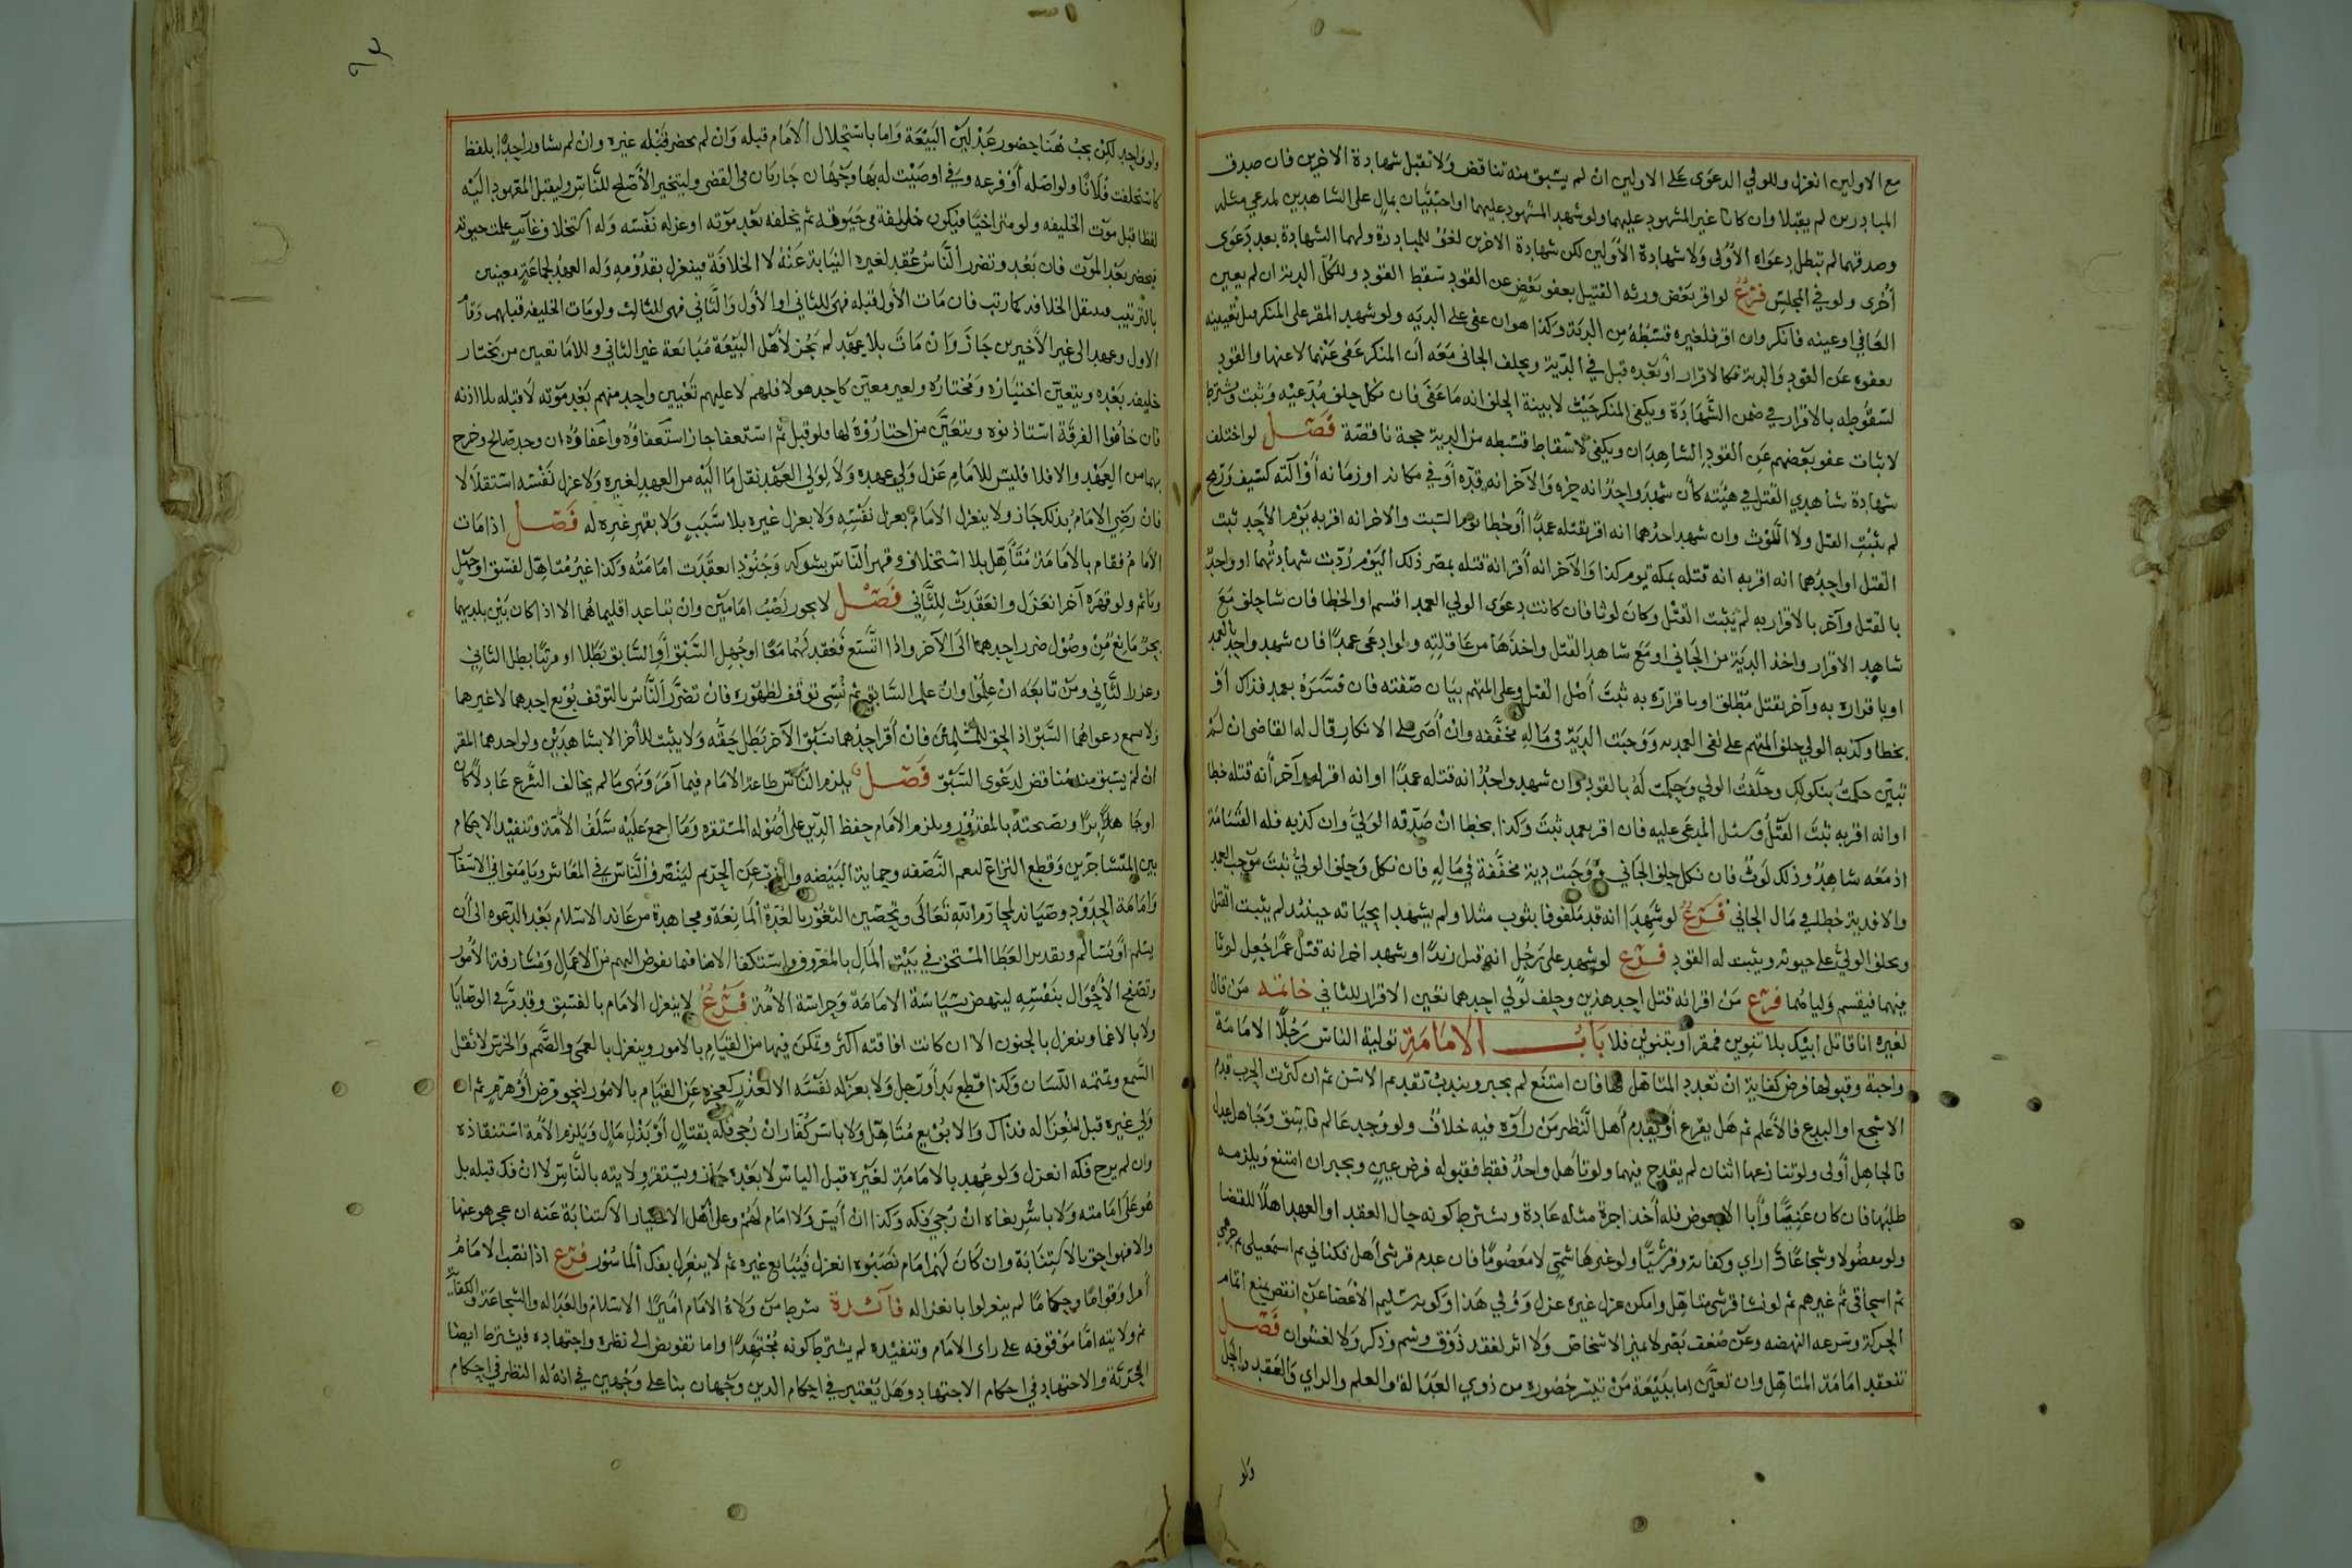 مع الاولين انعزل وللولي الدعوى على الاولين ان لم يسبق منه تناقض ولا تقبل شهادة الاخرين فان صدق
المبادرين لم يقبلا وان كانا غير المشهود عليهما ولو شهد المشهود عليهما او اجنبيان بمال على الشاهدين لمدعي مثله
وصدقهما لم تبطل دعواه الأولى ولا شهادة الأولين لكن شهادة الاخرين لغو للمبادرة ولهما الشهادة بعد دعوى
أخرى ولو في المجلس فرع لو اقر بعض ورثه القتيل بعفو بعض عن القود سقط القود وللكل الدية ان لم يعين
العافي او عينه فانكر وان اقر فلغيره قسطه من الدية وكذا هو ان عفى على الديه ولو شهد المقر على المنكر قبل تعيينه
بعفوه عن القود والدية فكالاقرار أو بعده قبل في الدية ويحلف الجاني معه أن المنكر عفى عنهما لا عنها والقود
لسقوطه بالاقرار في ضمن الشهادة ويكفي المنكر حيث لا بينة الحلف انه ما عفى فان نكل حلف مدعيه وثبت ويشترط
لاثبات عفو بعضهم عن القود الشاهدان ويكفي لاسقاط قسطه من الدية حجة ناقصة فصل لو اختلف
شهادة شاهدي القتل في هيئته كأن شهد واحد انه حزه والآخر انه قده أو في مكانه او زمانه أو آلته كسيف ورمح
لم يثبت القتل ولا اللوث وان شهد احدهما انه اقر بقتله عمدا أو خطا يوم السبت والاخر انه اقر به يوم الأحد ثبت
القتل او احدهما انه اقر به انه قتله بمكة يوم كذا والآخر انه أقر انه قتله بمصر ذلك اليوم ردت شهادتهما او واحد
بالقتل وآخر بالاقرار به لم يثبت القتل وكان لوثا فان كانت دعوى الولي العمد اقسم او الخطا فان شا حلف مع
شاهد الاقرار واخذ الدية من الجاني او مع شاهد القتل واخذها من عاقلته ولو ادعى عمدا فان شهد واحد بالعمد
او باقراره به وآخر بقتل مطلق او باقراره به ثبت أصل القتل وعلى المتهم بيان صفته فان فسره بعمد فذاك أو
بخطا وكذبه الولي حلف المتهم على نفي العمديه ووجبت الدية في ماله مخففه وان أصر على الانكار قال له القاضي ان لم
تبين حكمت بنكولك وحلفت الولي وحكمت له بالقود وان شهد واحد انه قتله عمدا او انه اقر به وآخر أنه قتله خطا
او انه اقر به ثبت القتل وسئل المدعى عليه فان اقر بعمد ثبت وكذا بخطا ان صدقه الولي وان كذبه فله القسامة
اذ معه شاهد وذلك لوث فان نكل حلف الجاني ووجبت دية مخففة في ماله فان نكل وحلف الولي ثبت موجب العمد
والا فدية خطا في مال الجاني فرع لو شهدا انه قد ملفوفا بثوب مثلا ولم يشهدا بحياته حينئذ لم يثبت القتل
ويحلف الولي على حيوته ويثبت له القود فرع لو شهد على رجل انه قتل زيدا وشهد اخر انه قتل عمرا جعل لوثا
فيهما فيقسم ولياهما فرع من اقر انه قتل احد هذين وحلف لولي احدهما تعين الاقرار للثاني خاتمه من قال
لغيره انا قاتل ابيك بلا تنوين فمقر أو بتنوين فلا باب الامامة تولية الناس رجلا الامامة
واجبة وقبولها فرض كفاية ان تعدد المتاهل لها فان امتنع لم يجبر ويندب تقديم الاسن ثم ان كثرت الحرب قدم
الاشجع او البدع فالأعلم ثم هل يقرع أو يقدم أهل النظر من رأوه فيه خلاف ولو وجد عالم فاسق وجاهل عدل
فالجاهل أولى ولو تنازعها اثنان لم يقدح فيهما ولو تأهل واحد فقط فقبوله فرض عين ويجبر ان امتنع ويلزمه
طلبها فان كان غنيا وأبا الا بعوض فله أخذ اجرة مثله عادة ويشترط كونه حال العقد او العهد اهلا للقضا
ولو مفضولا وشجاعا ذا راي وكفاية وقرشيا اولو غيرها شمي لا معصوما فان عدم قرشي أهل فكناني ثم اسمعيلي ثم جرهمي
ثم اسحاقي ثم غيرهم ثم لو نشا قرشي متاهل وامكن عزل غيره عزل وولي هذا وكونه سليم الأعضا عن نقص يمنع تمام
الحركة وسرعه النهضه وعن ضعف بصر لا يميز الاشخاص ولا اثر لفقد ذوق وشم وذكر ولا لغشوان فصل
تنعقد امامة المتاهل وان تعين اما ببيعة من تيسر حضوره من ذوي العدالة والعلم والراي والعقد والحل
ولو
ولو واحد لكن يجب هنا حضور عدلين البيعة واما باستخلال الامام قبله وان لم يحضر قبله غيره وان لم يشاور احدا بلفظ
كاستخلفت فلانا ولو اصله أو فرعه وفي اوصيت له بها وجهان جاريان في القضى وليتخير الأصلح للناس وليقبل المعهود اليه
لفظا قبل موت الخليفه ولو متراخيا فيكون خليفة في حيوته ثم يخلفه بعد موته او عزله نفسه وله استخلاف غائب علمت حيوته
فيحضر بعد الموت فان بعد وتضرر الناس عقد لغيره النيابة عنه لا الخلافة فينعزل بقدومه وله العهد لجماعة معينين
بالترتيب فتنتقل الخلافه كما رتب فان مات الأول قبله فهي للثاني او الأول والثاني فهي للثالث ولو مات الخليفه قبلهم وقام
الاول وعهد الى غير الأخيرين جاز وان مات بلا عهد لم يجز لأهل البيعة مبايعة غير الثاني وللامام تعيين من يختار
خليفه بعده ويتعين اختياره ومختاره ولغير معين كاحد هولا فلهم لا عليهم تعيين واحد منهم بعد موته لا قبله بلا اذنه
فان خافوا الفرقة استاذنوه ويتعين من اختاروه لها ولو قبل ثم استعفا جاز استعفاؤه واعفاؤه ان وجد صالح وخرج
بهما من العهد والا فلا فليس للامام عزل ولي عهده ولا لولي العهد نقل ما اليه من العهد لغيره ولا عزل نفسه استقلالا
فان رضي الامام بذلك جاز ولا ينعزل الامام بعزل نفسه ولا بعزل غيره بلا سبب ولا بقهر غيره له فصل اذا مات
الامام فقام بالامامة متأهل بلا استخلاف وقهر الناس بشوكه وجنود انعقدت امامته وكذا غير متاهل لفسق او جهل
وياثم ولو قهره آخر انعزل وانعقدت للثاني فصل لا يجوز نصب امامين وان تباعد اقليماهما الا اذا كان بين بلديهما
بحر مانع من وصول ضرر احدهما الى الآخر واذا اتسع فعقد لهما معا او جهل السبق أو السابق بطلا او مرتبا بطل الثاني
وعزر الثاني ومن تابعه ان علموا وان علم السابق ثم نسي توقف لظهوره فان تضرر الناس بالتوقف بويع احدهما لا غيرهما
ولا تسمع دعواهما السبق اذ الحق للمسلمين فان أقر احدهما بسبق الآخر بطل حقه ولا يثبت للآخر الا بشاهدين ولو احدهما المقر
ان لم يسبق منه مناقض لدعوى السبق فصل يلزم الناس طاعة الامام فيما أمر ونهى ما لم يخالف الشرع عادلا كان
او جائرا ونصحته بالمقدور ويلزم الامام حفظ الدين على أصوله المستقره وما اجمع عليه سلف الأمة وتنفيذ الاحكام
بين المتشاجرين وقطع النزاع لتعم النصفه وحماية البيضه والذب عن الحريم ليتصرف الناس في المعاش ويامنوا في الاسفار
واقامة الحدود وصيانه لمحارم الله تعالى وتحصين الثغور بالعدة المانعة ومجاهدة من عاند الاسلام بعد الدعوه الى أن
يسلم أو يسالم وتقدير العطا المستحق في بيت المال بالمعروف واستكفا الامنا فيما يفوض اليهم من الاعمال ومشارفة الأمور
وتصفح الأحوال بنفسه لينهض بسياسة الامامة وحراسة الأمة فرع لا ينعزل الامام بالفسق وقد مر في الوصايا
ولا بالاغما وينعزل بالجنون الا ان كانت افاقته أكثر وتمكن فيها من القيام بالامور وينعزل بالعمى والصمم والخرس لا ثقل
السمع وتمتمه اللسان وكذا قطع يد أو رجل ولا بعزله نفسه الا لعذر كعجزه عن القيام بالامور لنحو مرض أو هرم ثم ان
ولي غيره قبل انعزاله فذاك والا بويع متاهل ولا باسر كفار ان رجي فكه بقتال أو بذل مال ويلزم الأمة استنقاذه
وان لم يرج فكه انعزل ولو عهد بالامامة لغيره قبل الياس لا بعده جاز ويستقر ولايته بالناس لا ان فك قبله بل
هو على امامته ولا باسر بغاه ان رجي فكه وكذا ان أيس ولا امام لهم وعلى أهل الاختيار الاستنابة عنه ان عجز هو عنها
والا فهو احق بالاستنابة وان كان لهم امام نصبوه انعزل فيبايع غيره ثم لا ينعزل بفك المأسور فرع اذا نصب الامام
أمرا وقواما وحكاما لم ينعزلوا بانعزاله فائدة شرط من ولاه الامام اميرا الاسلام والعداله والشجاعة والكفاية
ثم ولايته اما موقوفه على راى الامام وتنفيذه لم يشترط كونه مجتهدا واما تفويض الى نظره واجتهاده فيشترط ايضا
الحرية والاجتهاد في احكام الاجتهاد وهل يعتبر في احكام الدين وجهان بنا على وجهين في انه له النظر في احكام